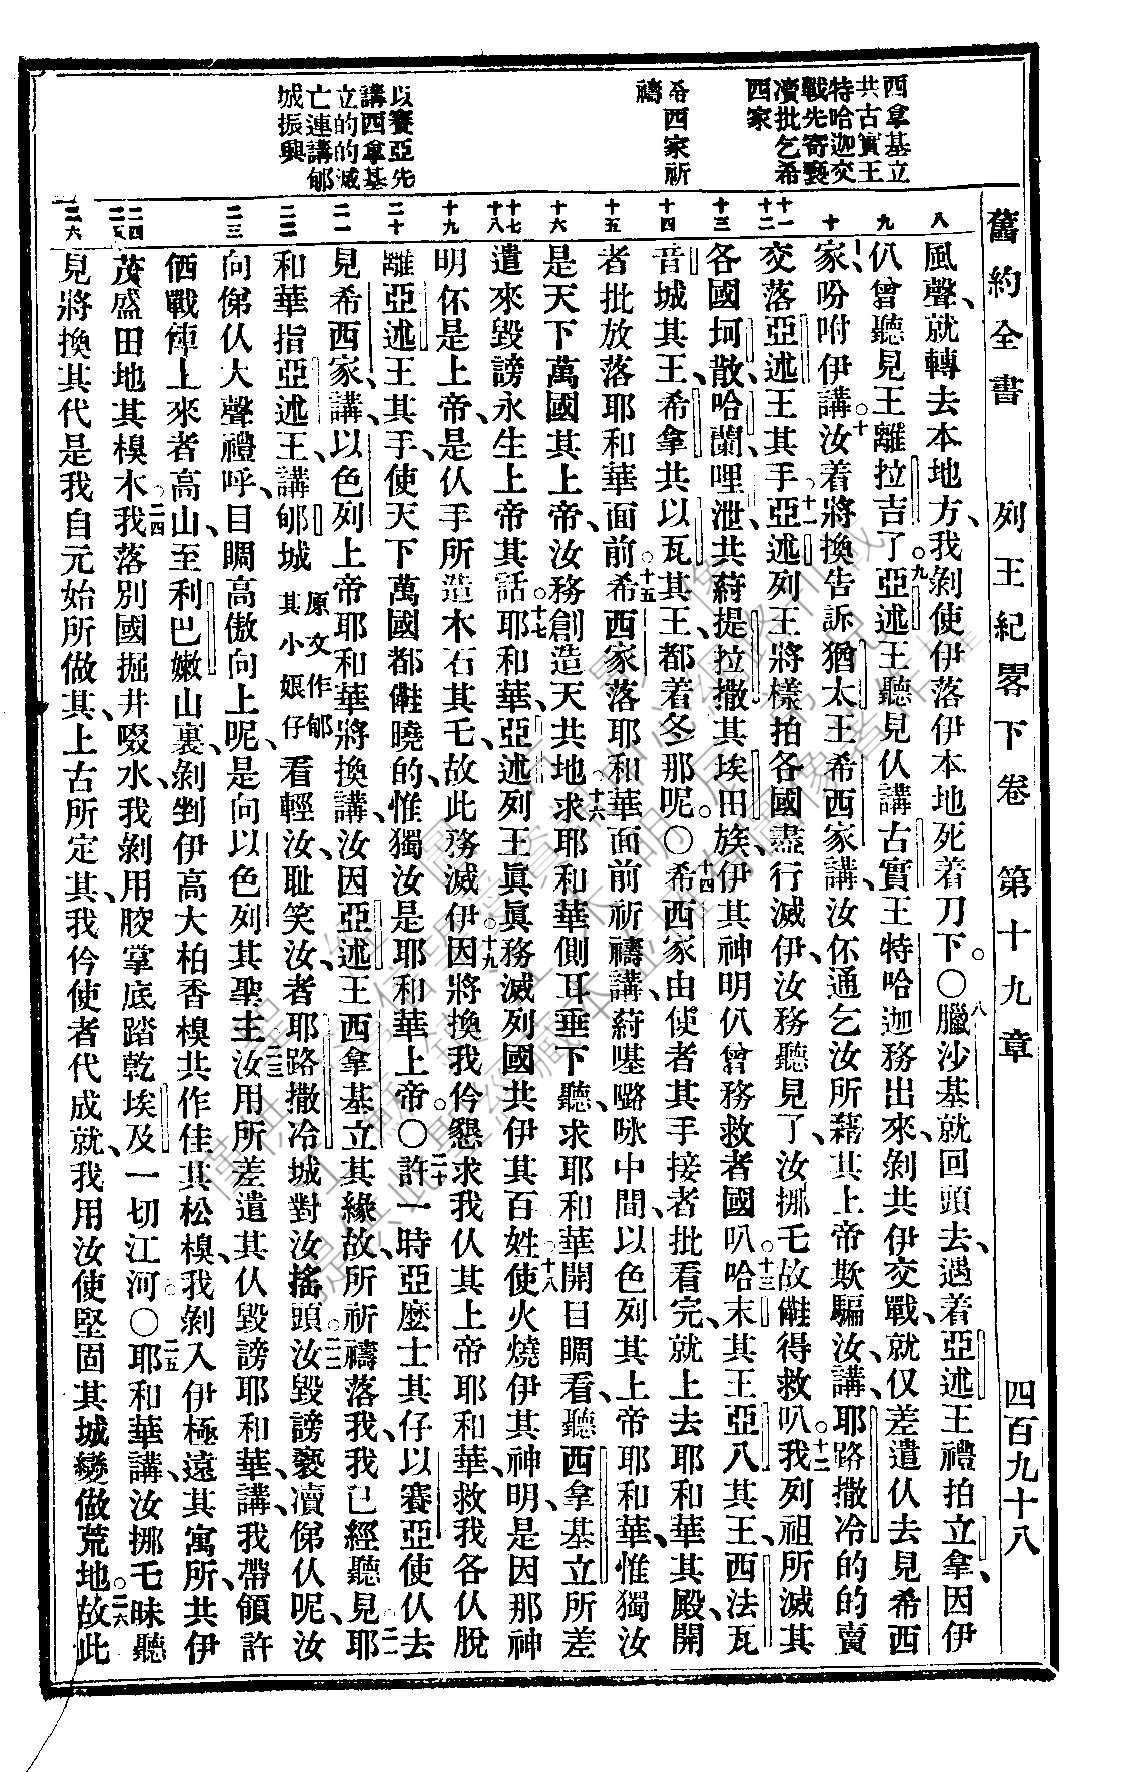 舊約全書　列王紀畧下卷　第十九章　四百九十八
西拿基立
共古實王
特哈迦交
戰先寄褻
瀆批乞希
西家
希西家祈
禱
以賽亞先
講西拿基
立的的滅
亡連講郇
城振興
八
九
十
十一
十二
十三
十四
十五
十六
十七
十八
十九
二十
二一
二二
二三
二四
二五
二六
風聲、就轉去本地方、我剝使伊落伊本地死着刀下。〇八臘沙基就回頭去、遇着亞述王禮拍立拿、因伊
仈曾聽見王離拉吉了。九亞述王聽見仈講古實王特哈迦務出來、剝共伊交戰、就仅差遣仈去見希西
家、吩咐伊講。十汝着將換告訴猶太王希西家講、汝伓通乞汝所藉其上帝欺騙汝、講、耶路撒冷的的賣
交落亞述王其手。十一亞述列王將樣拍各國、盡行滅伊、汝務聽見了、汝挪乇故𣍐得救叭。十二我列祖所滅其
各國、坷散、哈蘭、哩泄、共䓁提拉撒其埃田族、伊其神明仈曾務救者國叭。十三哈末其王、亞八其王、西法瓦
音城其王、希拿共以瓦其王、都着冬那呢。〇十四希西家由使者其手接者批看完、就上去耶和華其殿、開
者批放落耶和華面前。十五希西家落耶和華面前祈禱講、䓁𡅏嚕咏中間、以色列其上帝耶和華、惟獨汝
是天下萬國其上帝、汝務創造天共地。十六求耶和華側耳垂下聽、求耶和華開目睭看、聽西拿基立所差
遣來毀謗、永生上帝其話。十七耶和華、亞述列王眞眞務滅列國共伊其百姓。十八使火燒伊其神明、是因那神
明伓是上帝、是仈手所造木石其乇、故此務滅伊。十九因將換我伶懇求我仈其上帝耶和華、救我各仈脫
離亞述王其手、使天下萬國都𣍐曉的、惟獨汝是耶和華上帝。〇二十許一時亞麼士其仔以賽亞使仈去
見希西家、講、以色列上帝耶和華將換講、汝因亞述王西拿基立其緣故、所祈禱落我、我已經聽見。二一耶
和華指亞述王、講、郇城原文作郇其小娘仔、看輕汝、耻笑汝、者耶路撒冷城對汝搖頭。二二汝毀謗褻瀆俤仈呢、汝
向俤仈大聲禮呼、目睭高傲向上呢、是向以色列其聖主。二三汝用所差遣其仈毀謗耶和華、講、我帶領許
価戰陣上來者高山、至利巴嫩山裏、剝剉伊高大柏香槼共作佳其松槼、我剝入伊極遠其寓所、共伊
茂盛田地其槼木。二四我落別國掘井啜水、我剝用骹掌底踏乾埃及一切江河。〇二五耶和華講、汝挪乇昧聽
見將換其代是我自元始所做其、上古所定其、我伶使者代成就、我用汝使堅固其城變做荒地。二六故此